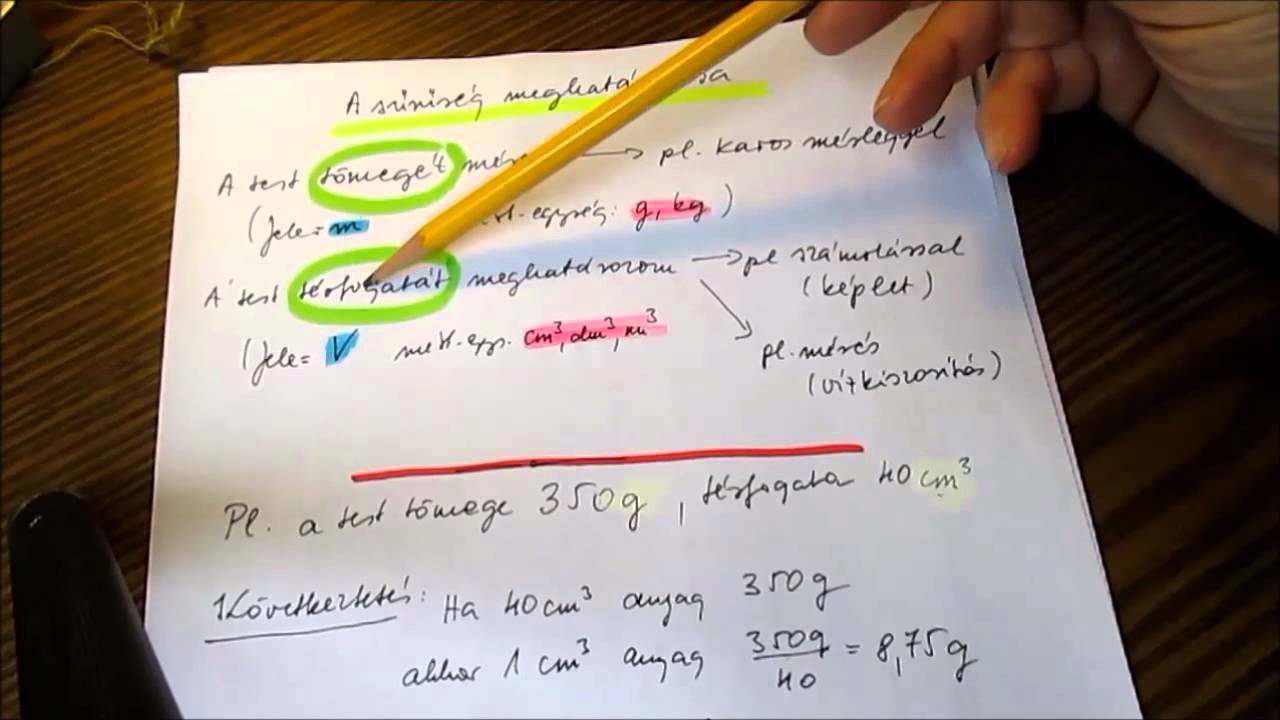 A sűrűség meghatá sa
A test tömegét mér → pl. karos mérleggel
(Jele= m -egység: g, kg)
A test térfogatát meghatározom → pl számolással
(képlet)
(Jele= V mért.egys. cm³, dm³, m³
pl. mérés
(vízkiszorítás)
Pl. a test tömege 350g, térfogata 40 cm³
1 Következtetés: Ha 40 cm³ anyag 350g
akkor 1 cm³ anyag 350g/40 = 8,75g